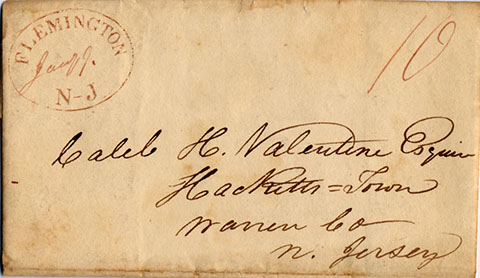 FLEMINGTON
N-J
10
Caleb H. Valentine Esquire
Hacketts=Town
Warren Co
N. Jersey